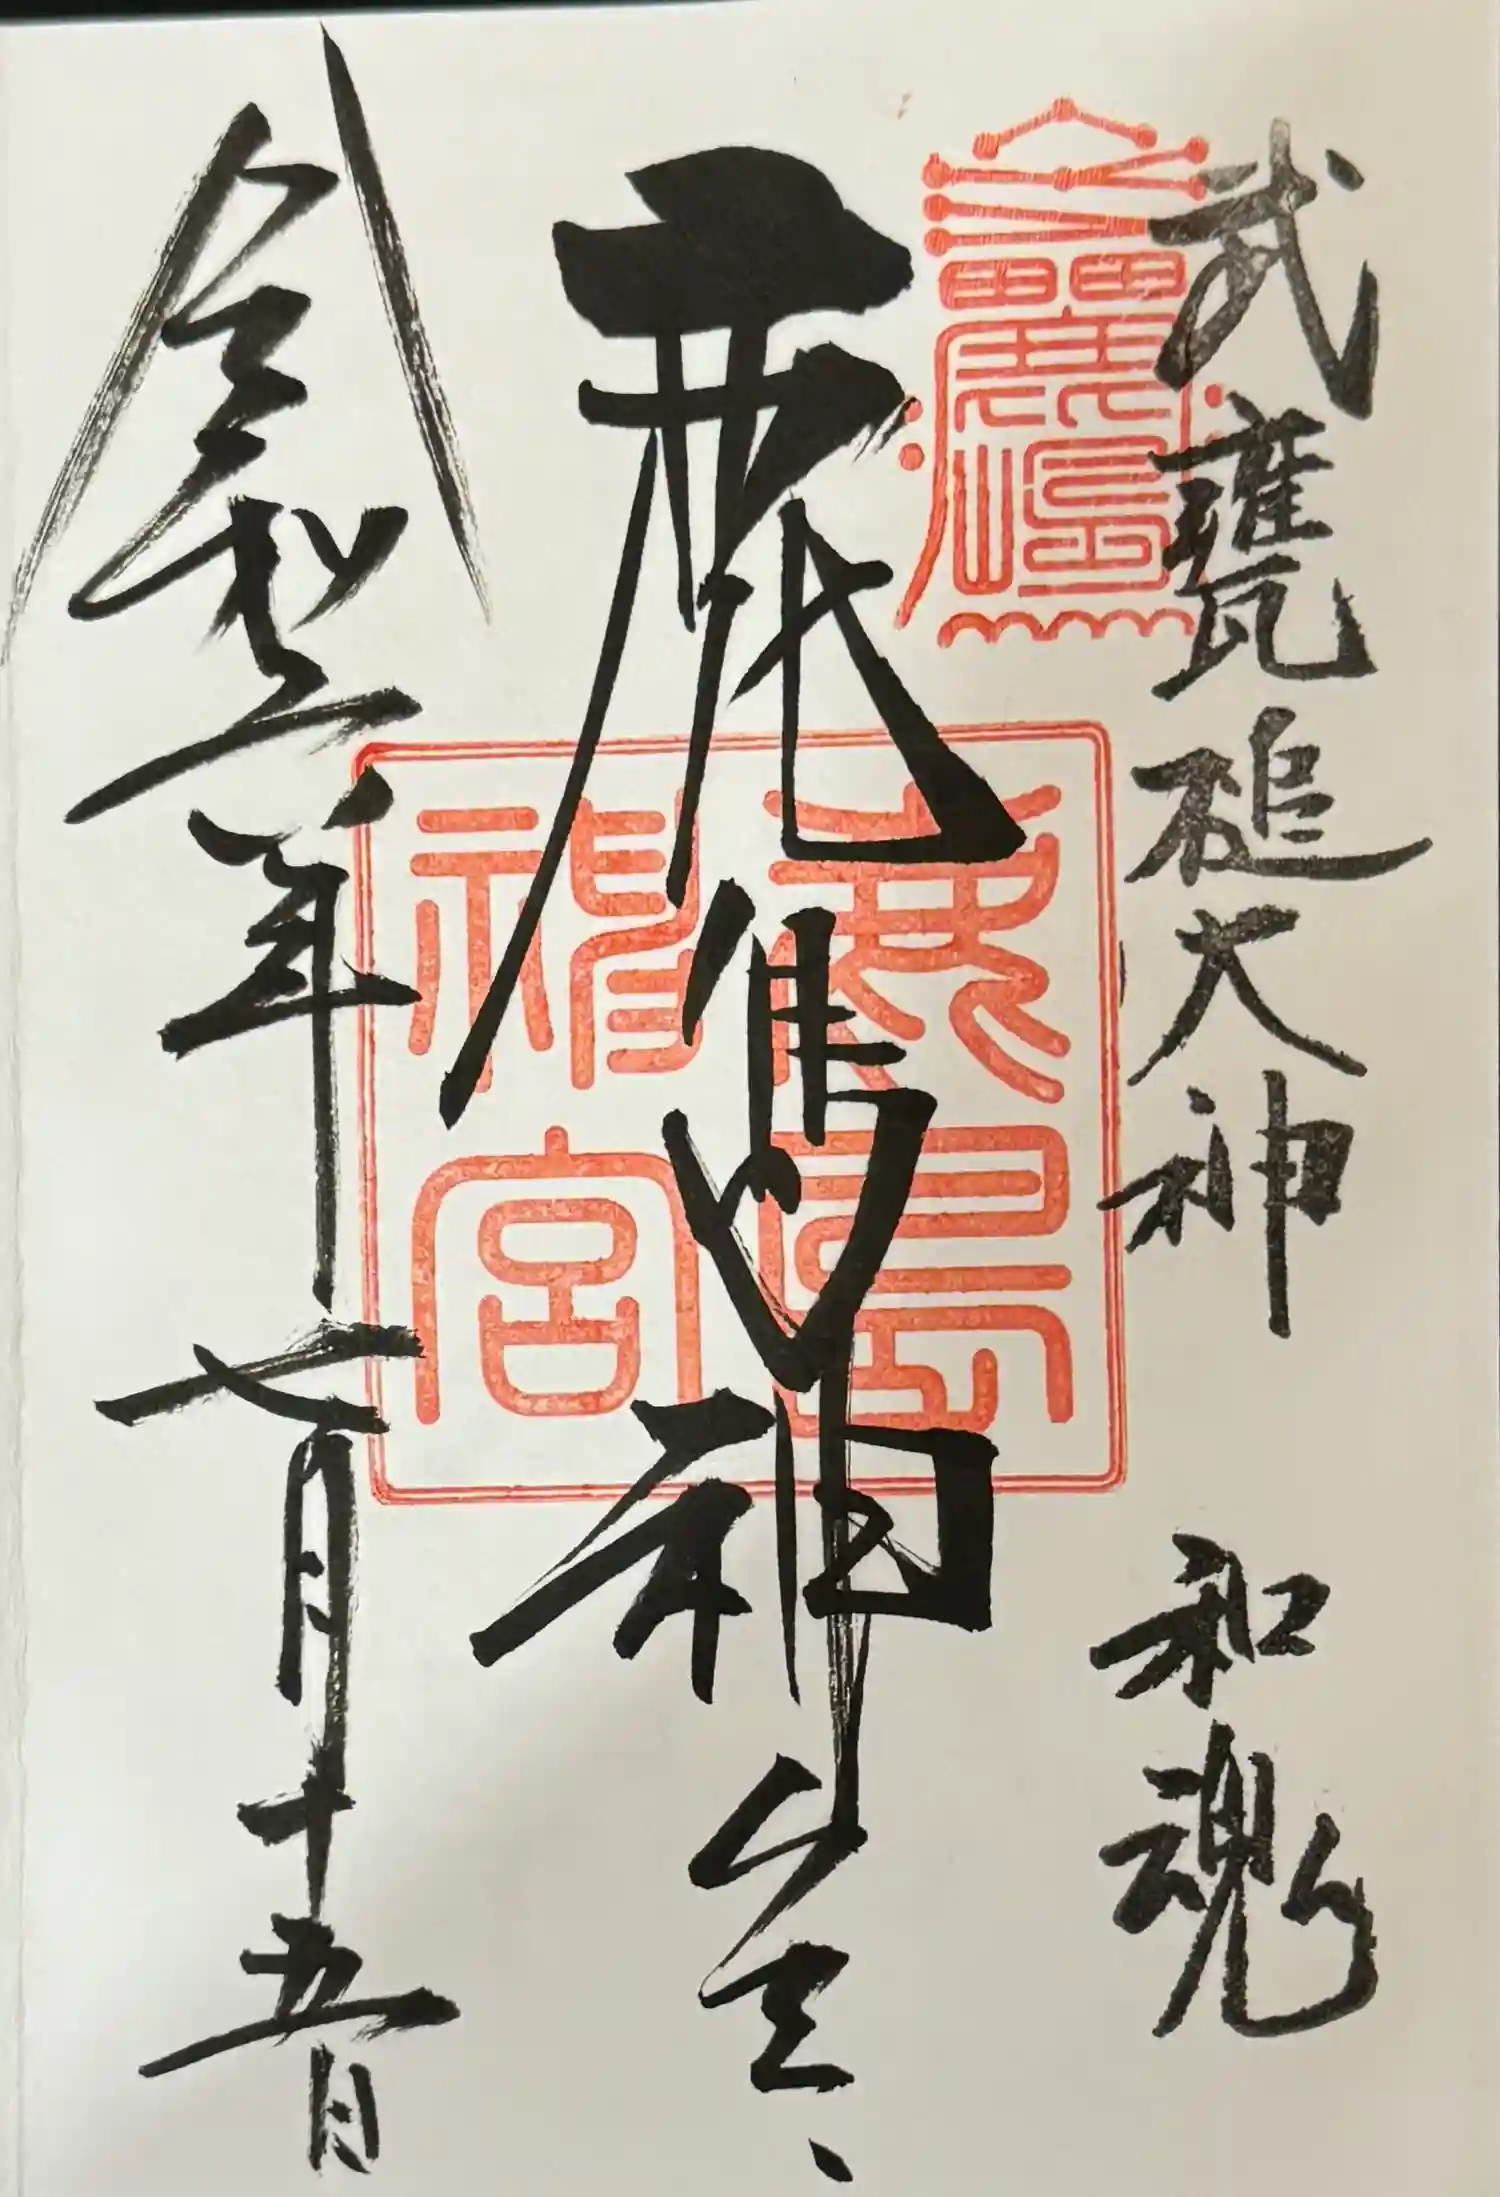 武甕槌大神 和魂
鹿島神宮
鹿島神宮
令和六年七月十五日